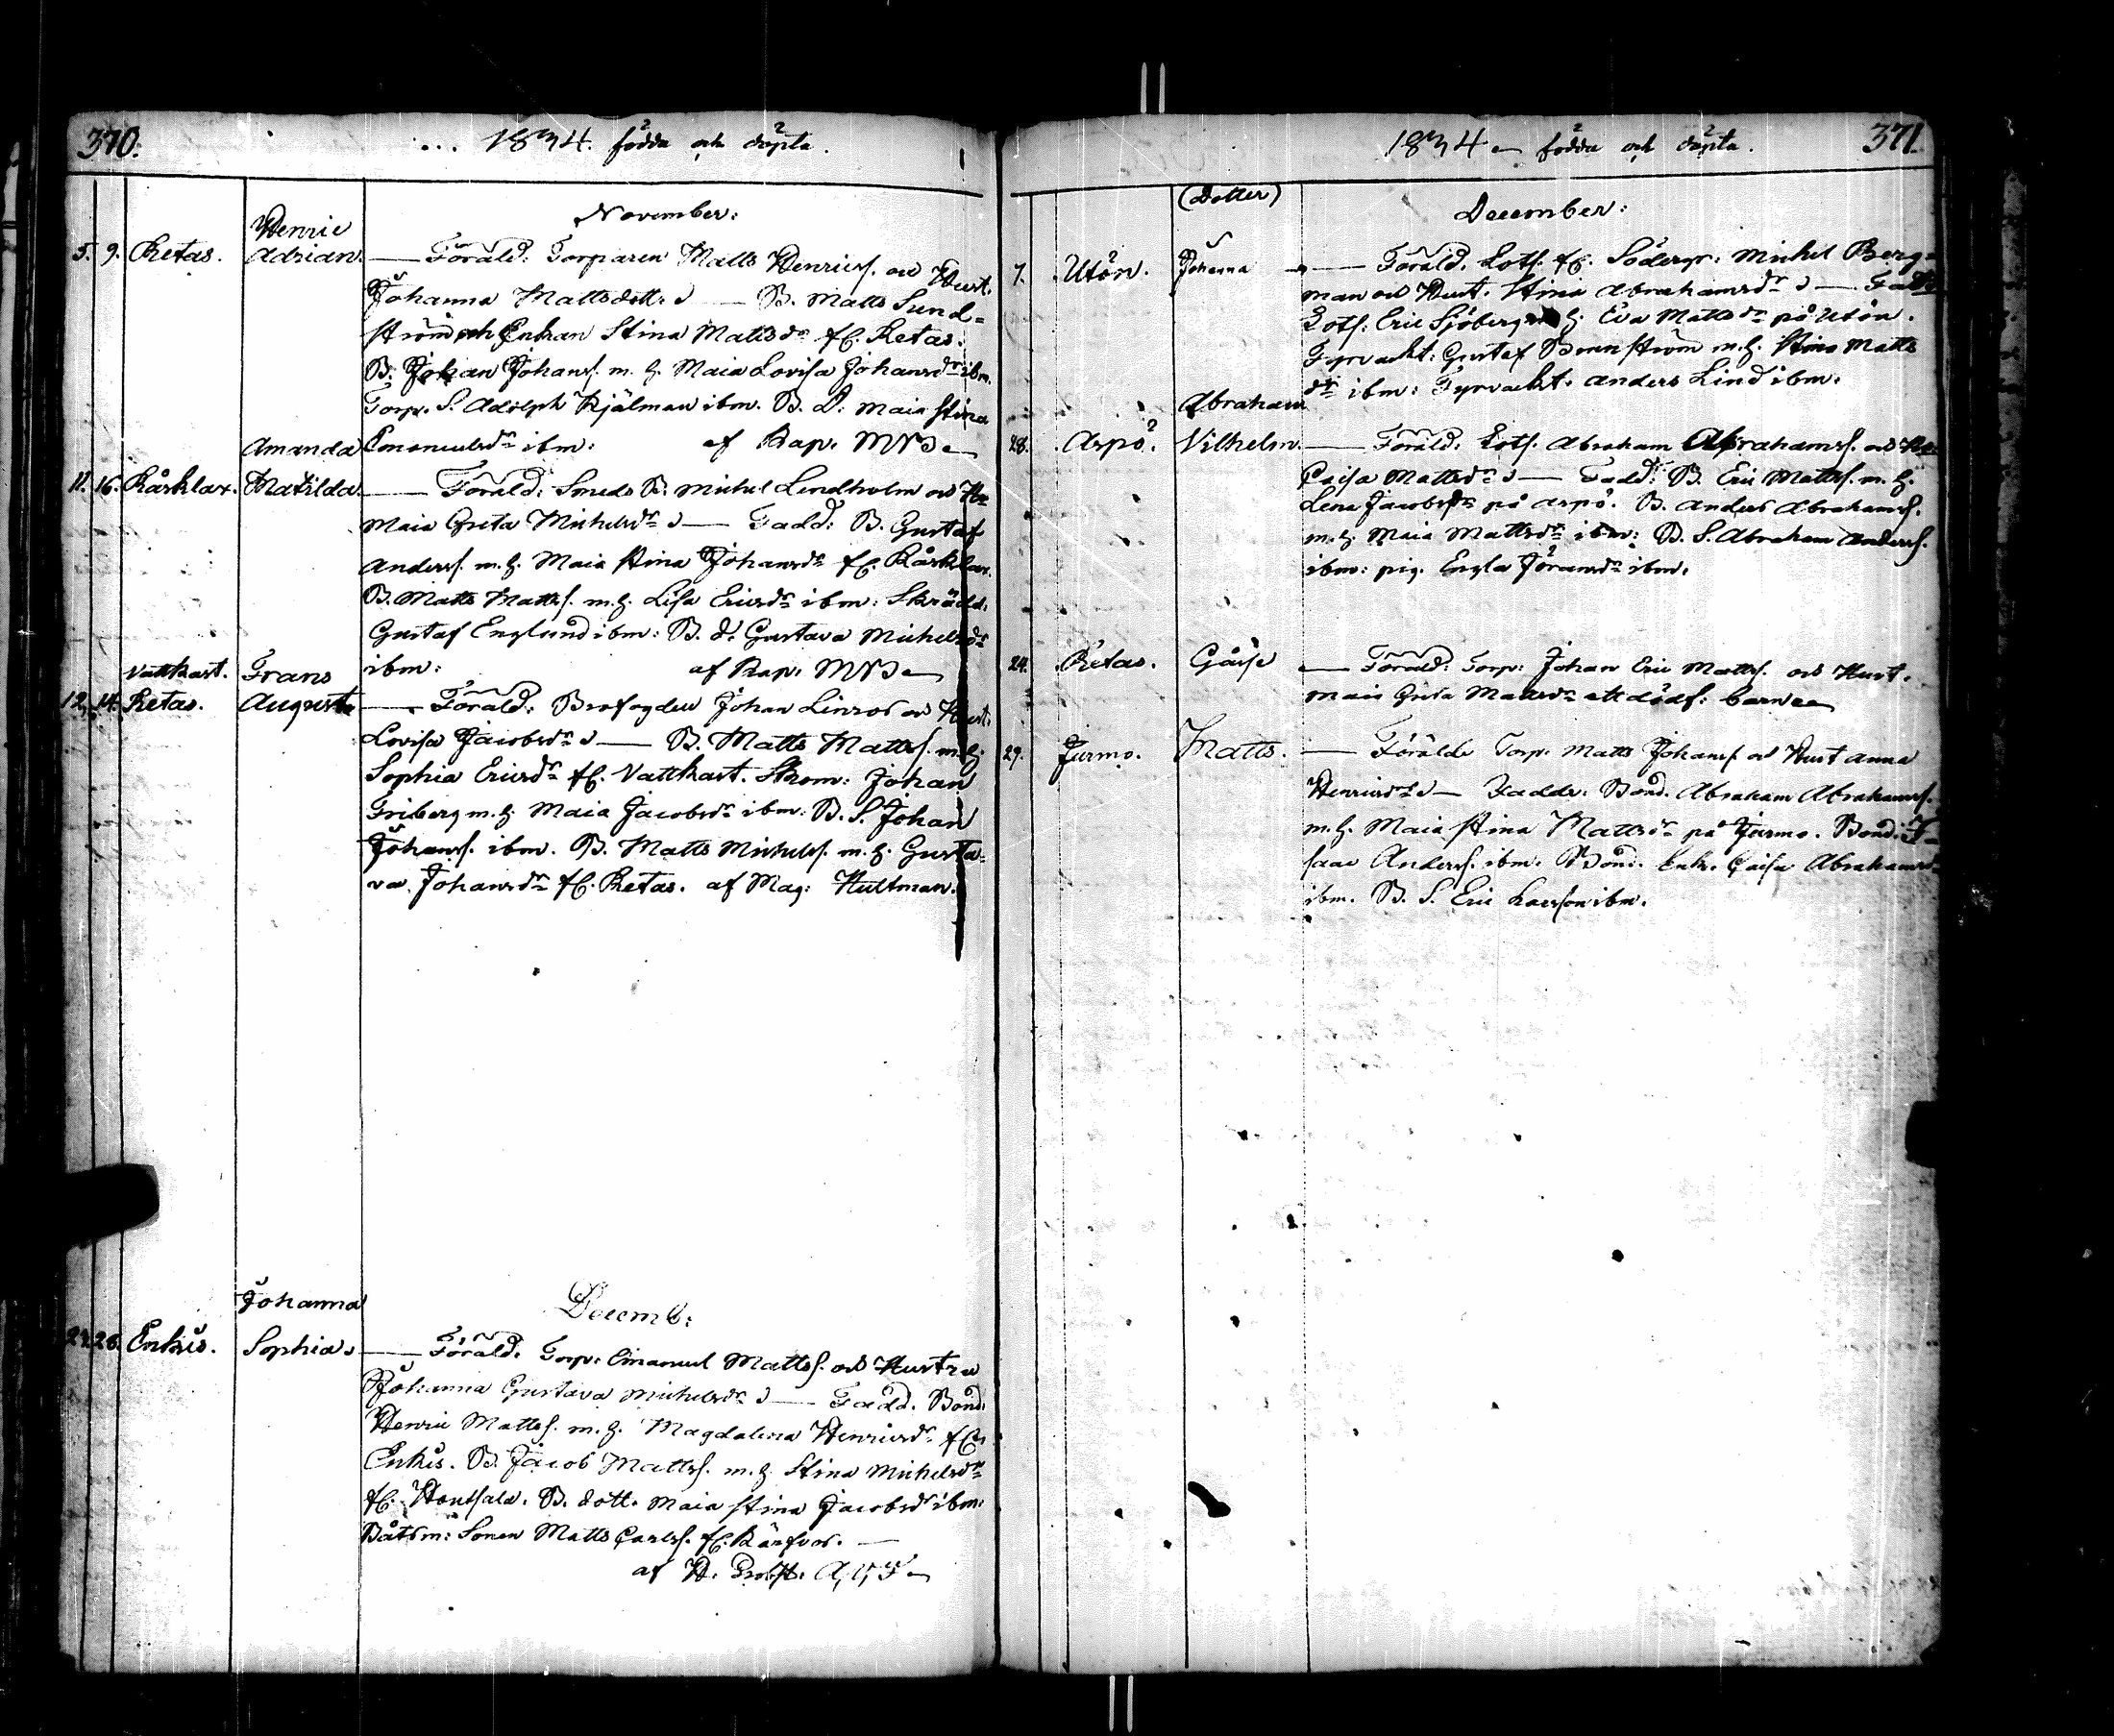 370.
1834. födda och döpta.
November:
Henric
5. 9. Retas. Adrian. — Föräld: Torparen Matts Henrics. och Hust.
Johanna Mattsdott: — B. Matts Sund=
ström och Enkan Stina Mattsdr fr. Retas.
B. Johan Johans. m. h. Maia Lovisa Johansdr ibm.
Torp. S. Adolph Kjälman ibm. B. D. Maia Stina
Amanda Emanuelsdr ibm: af Kap. MNB
11. 16. Kårklax. Matilda. — Föräld: Smeds B. Michel Lindholm och H
Maia Greta Michelsdr — Fadd: B. Gustaf
Anders. m. h. Maia Stina Johansdr fr. Kårklax.
B. Matts Matts. m. h. Lisa Ericsdr ibm: Skrädd.
Gustaf Englund ibm: B. d. Gustava Michelsdr
Vattkast. Frans ibm: af Kap. MNB
12. 14. Retas. August — Föräld: Brofogden Johan Linros och Hust.
Lovisa Jacobsdr — B. Matts Matts. m. h.
Sophia Ericsdr fr. Vattkast. Skom: Johan
Friberg m. h. Maia Jacobsdr ibm: B. S. Johan
Johans. ibm. B. Matts Michels. m. h. Gusta=
va Johansdr fr. Retas. af Mag: Hultman.
Decemb:
Johanna
28. Enkis. Sophia — Föräld. Torp: Emanuel Matts. och Hustru
Johanna Gustava Michelsdr — Fadd. Bond.
Henric Matts. m. h. Magdalena Henricsdr fr.
Enkis. B. Jacob Matts. m. h. Stina Michelsdr
fr. Hontsala. B. dott. Maia Stina Jacobsdr ibm:
Båtsm: Sonen Matts Carls. fr.
af H. Probst.
371.
1834 födda och döpta.
(Dotter)
December:
7. Utön. Johanna — Föräld. Lots. fr. Södergr: Michel Berg=
man och Hust. Stina Abrahamsdr — Fadd
Lots. Eric Sjöberg m. h. Eva Mattsdr på Utön.
Fyrvackt: Gustaf m. h. Stina Matts
dr ibm: Fyrvackt. Anders Lind ibm.
Abraham
28. Aspö. Vilhelm. — Föräld. Lots. Abraham Abrahams. och H
Caisa Mattsdr — Fadd: B. Eric Matts. m. h.
Lena Jacobsdr på Aspö. B. Anders Abrahams.
m. h. Maia Mattsdr ibm: B. S. Abraham Anders.
ibm: pig. Engla Göransdr ibm.
24. Retas. Gåsse — Föräld: Torp: Johan Eric Matts. och Hust.
Maia Greta Mattsdr ett dödf: barn
29. Jurmo. Matts. — Förälde Torp. Matts Johans. och Hust Anna
Henricsdr — Fadde: Bond. Abraham Abrahams.
m. h. Maia Stina Mattsdr på Jurmo. Bond. I=
saac Anders. ibm. Bond. Enk. Caisa Abrahamsd
ibm. B. S. Eric ibm.